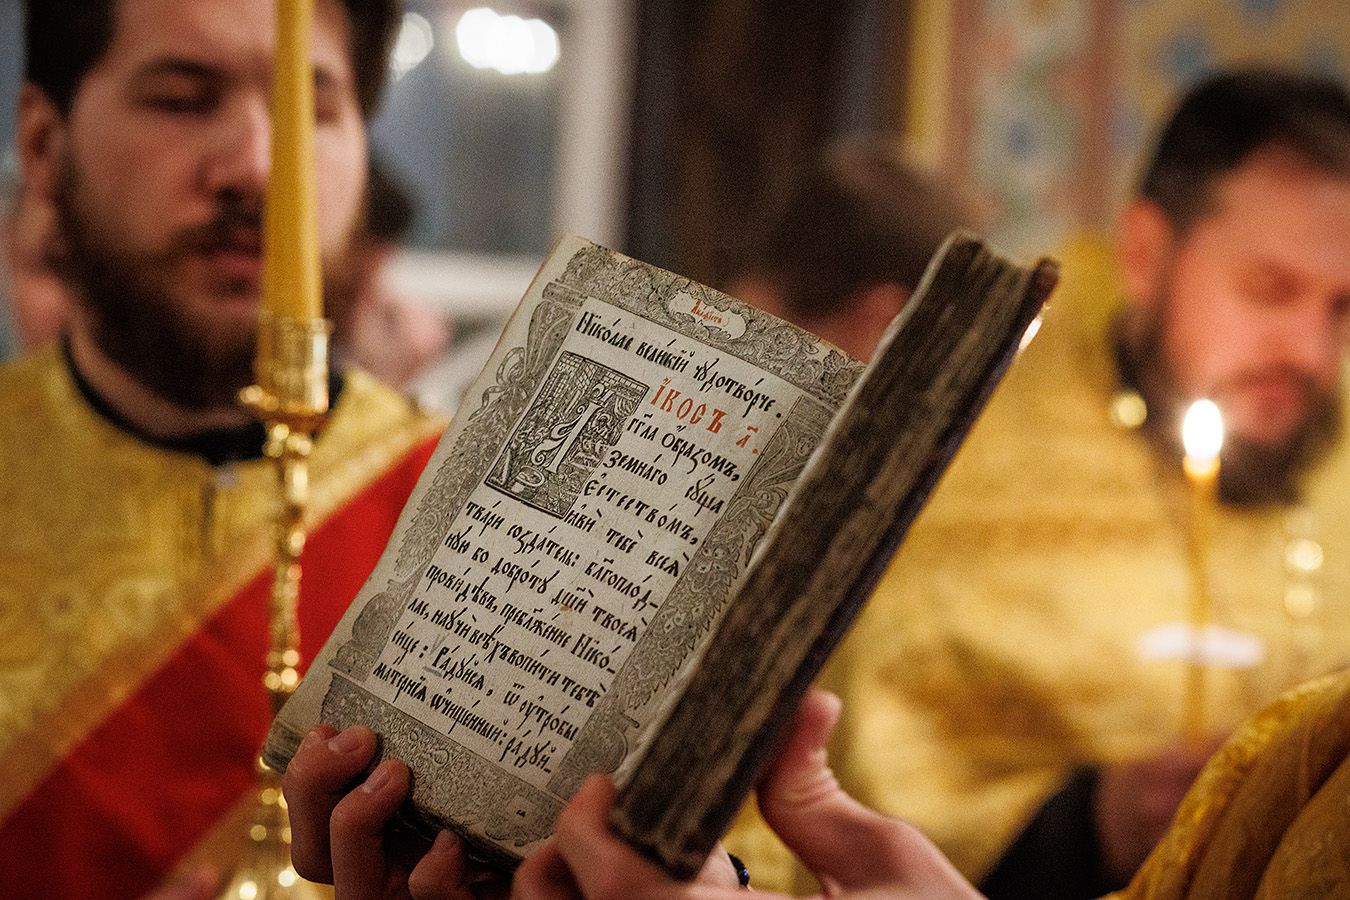 Акаѳистъ
Нїкола́е вели́кїй чꙋдотво́рче.
І҆́КОСЪ а҃.
А҆́гг҃ла ѡ҆́бразомъ,
земна́го сꙋ́ща
є҆стество́мъ,
ꙗ҆вѝ тебѐ всеѧ̀
тва́ри созда́тель: бл҃гопло́д-
нꙋю бо добро́тꙋ дш҃ѝ твоеѧ̀
прови́дѣвъ, пребл҃же́нне Нїко́-
лае, наꙋчѝ всѣ́хъ вопи́ти тебѣ̀
си́це: Ра́дꙋйсѧ, ѿ ᲂу҆тро́бы
ма́тернїѧ ѡ҆чище́нный: ра́дꙋй-